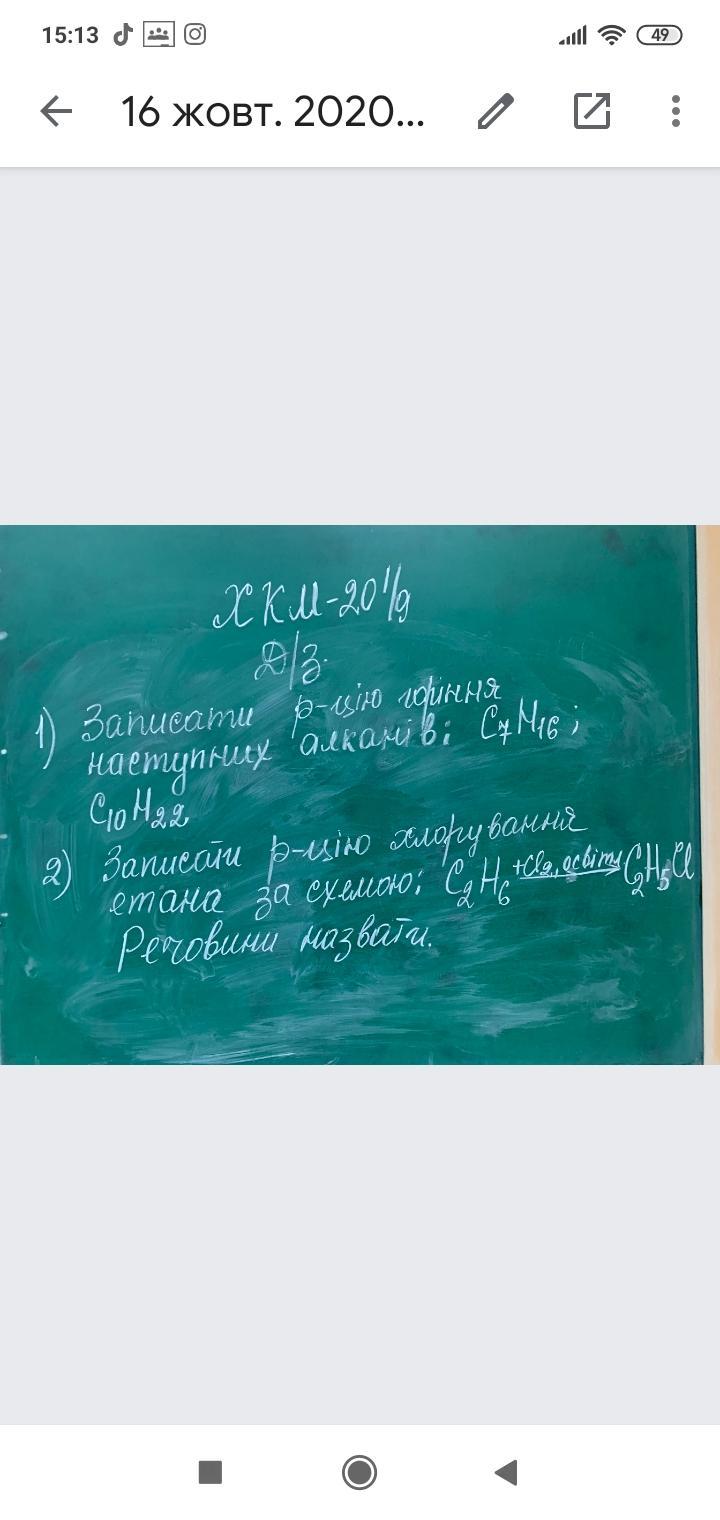 15:13 49
16 жовт. 2020...
ХКМ-20 1/9
Д/З.
1) Записати р-цію горіння
наступних алканів: C₇H₁₆;
C₁₀H₂₂
2) Записати р-цію хлорування
етана за схемою: C₂H₆ +Cl₂, освітл→ C₂H₅Cl
Речовини назвати.